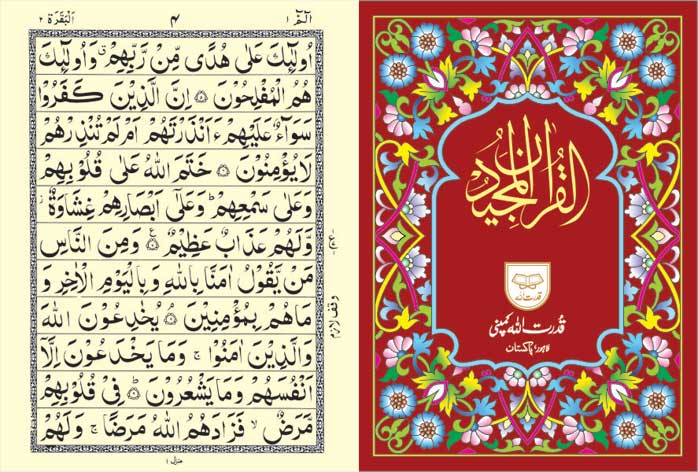 الٓـمّٓ ١
٤
اَلْبَقَرَة ٢
اُولٰٓئِكَ عَلٰى هُدًى مِّنْ رَّبِّهِمْ ۗ وَاُولٰٓئِكَ
هُمُ الْمُفْلِحُوْنَ ۝٥ اِنَّ الَّذِيْنَ كَفَرُوْا
سَوَآءٌ عَلَيْهِمْ ءَاَنْذَرْتَهُمْ اَمْ لَمْ تُنْذِرْهُمْ
لَا يُؤْمِنُوْنَ ۝٦ خَتَمَ اللّٰهُ عَلٰى قُلُوْبِهِمْ
وَعَلٰى سَمْعِهِمْ ؕ وَعَلٰٓى اَبْصَارِهِمْ غِشَاوَةٌ ۫
وَّلَهُمْ عَذَابٌ عَظِيْمٌ ۝٧ وَمِنَ النَّاسِ
مَنْ يَّقُوْلُ اٰمَنَّا بِاللّٰهِ وَبِالْيَوْمِ الْاٰخِرِ وَ
مَا هُمْ بِمُؤْمِنِيْنَ ۝٨ يُخٰدِعُوْنَ اللّٰهَ
وَالَّذِيْنَ اٰمَنُوْا ۚ وَمَا يَخْدَعُوْنَ اِلَّآ
اَنْفُسَهُمْ وَمَا يَشْعُرُوْنَ ۝٩ فِيْ قُلُوْبِهِمْ
مَّرَضٌ ۙ فَزَادَهُمُ اللّٰهُ مَرَضًا ۚ وَلَهُمْ
وقف لازم
منزل ١
القرآن المجید
قدرت اللہ
قُدرت اللہ کمپنی
لاہور، پاکستان